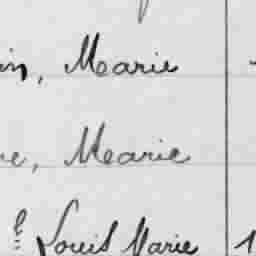 in, Marie
e, Marie
Louis Marie 1